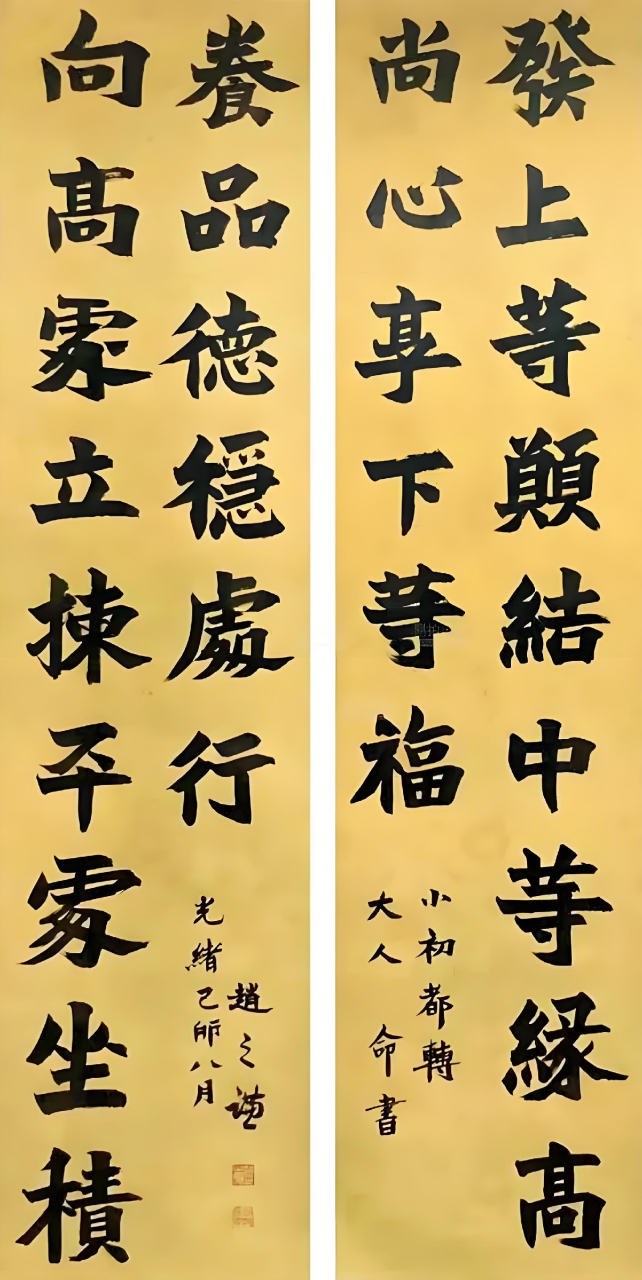 發上等願結中等緣高
尚心享下等福
小初都轉
大人命書
向高處立揀平處坐積
養品德穩處行
光緒己卯八月
趙之謙